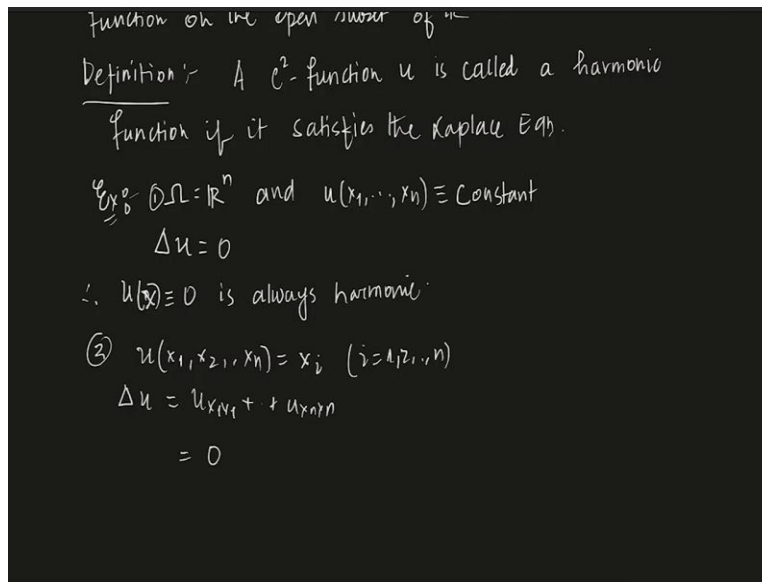 function on the open subset of ℝ
Definition :- A C²-function u is called a harmonic
function if it satisfies the Laplace Eqn.
Ex:- ① Ω = ℝⁿ and u(x₁,..,xₙ) ≡ Constant
Δu = 0
∴ u(x) ≡ 0 is always harmonic.
② u(x₁,x₂,..xₙ) = xᵢ (i=1,2,..,n)
Δu = u_x₁x₁ + + u_xₙxₙ
= 0